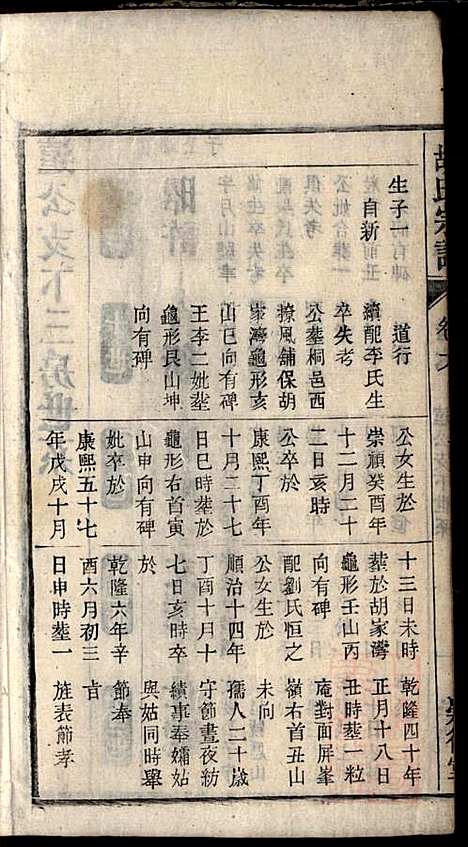 氏宗譜
生子一
自新
道行
續配李氏生
卒失考
公塟桐邑西
撩風舖保胡
家灣龜形亥
山巳向有碑
王李二妣塟
龜形艮山坤
向有碑
公女生於
崇禎癸酉年
十二月二十
二日亥時
公卒於
康熙丁酉年
十月二十七
日巳時塟於
龜形右首寅
山申向有碑
妣卒於
康熙五十七
年戊戌十月
十三日未時
塟於胡家灣
龜形壬山丙
向有碑
配劉氏恒之
公女生於
順治十四年
丁酉十月十
七日亥時卒
於
乾隆六年辛
酉六月初三
日申時塟一
乾隆四十年
正月十八日
丑時塟一粒
庵對面屏峯
嶺右首丑山
未向
孺人二十歲
守節晝夜紡
績事奉孀姑
與姑同時舉
節奉
旨
旌表節孝